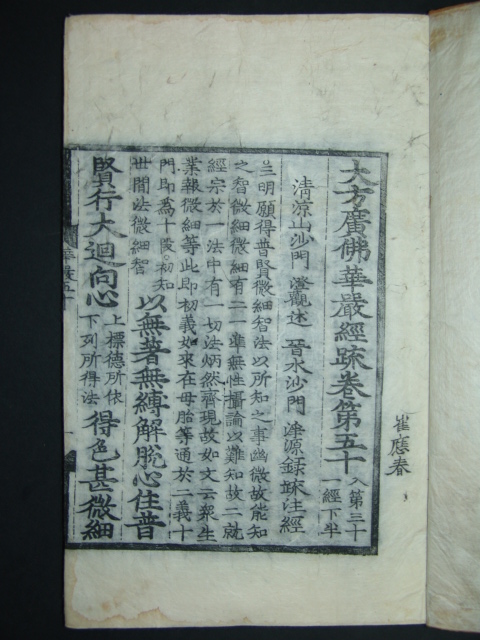 大方廣佛華嚴經疏卷第五十 入第三十一經下半
崔應春
清涼山沙門 澄觀述 晉水沙門 淨源錄疏注經
三明願得普賢微細智法以所知之事幽微故能知
之智微細微細有二一準無性攝論以難知故二就
經宗於一法中有一切法炳然齊現故如文云衆生
業報微細等此即初義如來在母胎等通於二義十
門即爲十段初知
世間法微細智
以無著無縛解脫心住普
賢行大迴向心 上標德所依下列所得法 得色甚微細